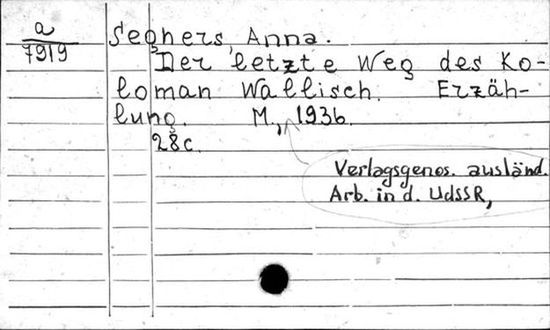 a
7919
Seghers, Anna.
Der letzte Weg des Ko-
loman Wallisch. Erzäh-
lung. M., 1936.
28c.
Verlagsgenos. ausländ.
Arb. in d. UdSSR,